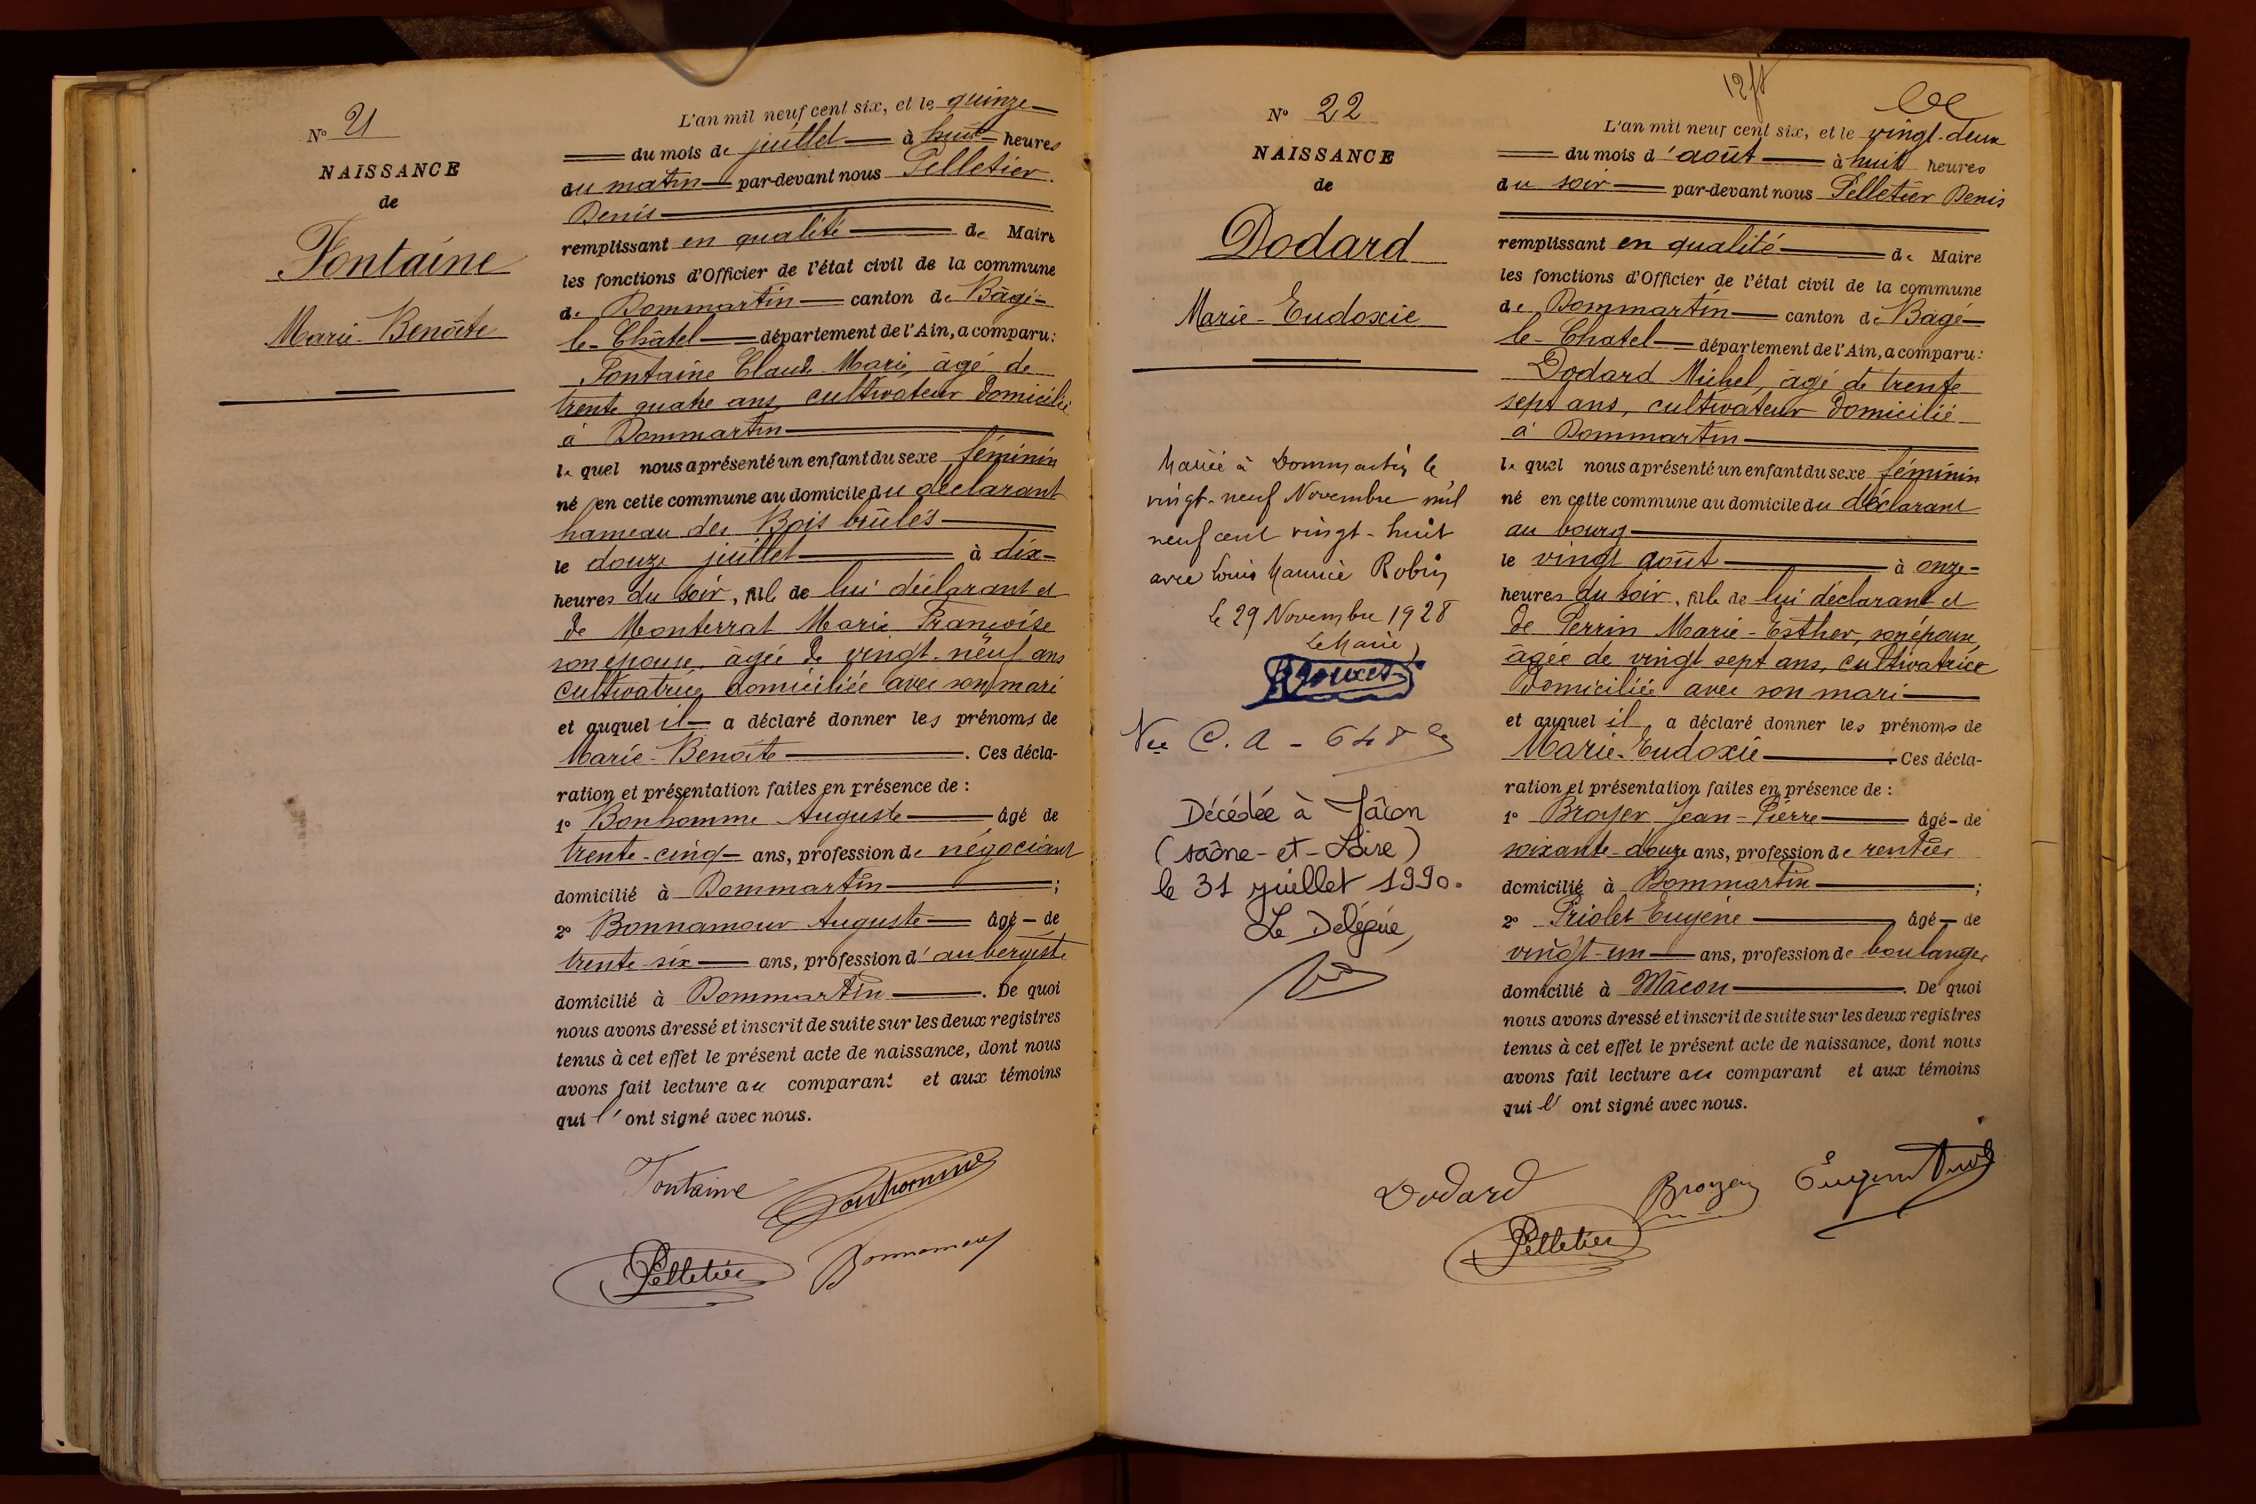 N° 21
NAISSANCE
de
Fontaine
Marie-Benoîte
L'an mil neuf cent six, et le quinze
du mois de juillet à huit heures
du matin par-devant nous Pelletier
Denis
remplissant en qualité de Maire
les fonctions d'Officier de l'état civil de la commune
de Dommartin canton de Bâgé-
le-Châtel département de l'Ain, a comparu:
Fontaine Claude Marie, âgé de
trente quatre ans, cultivateur domicilié
à Dommartin
lequel nous a présenté un enfant du sexe féminin
né en cette commune au domicile du déclarant
hameau des Bois brûlés
le douze juillet à dix
heures du soir, fille de lui déclarant et
de Monterrat Marie Françoise
son épouse, âgée de vingt-neuf ans
cultivatrice domiciliée avec son mari
et auquel il a déclaré donner les prénoms de
Marie-Benoîte. Ces décla-
ration et présentation faites en présence de :
1° Bonhomme Auguste âgé de
trente-cinq ans, profession de négociant
domicilié à Dommartin ;
2° Bonnamour Auguste âgé de
trente-six ans, profession d'aubergiste
domicilié à Dommartin. De quoi
nous avons dressé et inscrit de suite sur les deux registres
tenus à cet effet le présent acte de naissance, dont nous
avons fait lecture au comparant et aux témoins
qui l'ont signé avec nous.
Fontaine Bonhomme
Pelletier Bonnamour
N° 22
NAISSANCE
de
Dodard
Marie-Eudoxie
Mariée à Dommartin le
vingt-neuf Novembre mil
neuf cent vingt-huit
avec Louis Maurice Robin
le 29 Novembre 1928
Le Maire,
Née C.A - 648
Décédée à Mâcon
(Saône-et-Loire)
le 31 juillet 1990.
Le Délégué,
L'an mil neuf cent six, et le vingt-deux
du mois d'août à huit heures
du soir par-devant nous Pelletier Denis
remplissant en qualité de Maire
les fonctions d'Officier de l'état civil de la commune
de Dommartin canton de Bâgé-
le-Chatel département de l'Ain, a comparu:
Dodard Michel, âgé de trente
sept ans, cultivateur domicilié
à Dommartin
lequel nous a présenté un enfant du sexe féminin
né en cette commune au domicile du déclarant
au bourg
le vingt août à onze
heures du soir, fille de lui déclarant et
de Perrin Marie-Esther, son épouse,
âgée de vingt sept ans, cultivatrice
domiciliée avec son mari
et auquel il a déclaré donner les prénoms de
Marie-Eudoxie. Ces décla-
ration et présentation faites en présence de :
1° Broyer Jean-Pierre âgé de
soixante-douze ans, profession de rentier
domicilié à Dommartin ;
2° Priolet Eugène âgé de
vingt-un ans, profession de boulanger
domicilié à Mâcon. De quoi
nous avons dressé et inscrit de suite sur les deux registres
tenus à cet effet le présent acte de naissance, dont nous
avons fait lecture au comparant et aux témoins
qui l'ont signé avec nous.
Dodard Broyer Eugène
Pelletier